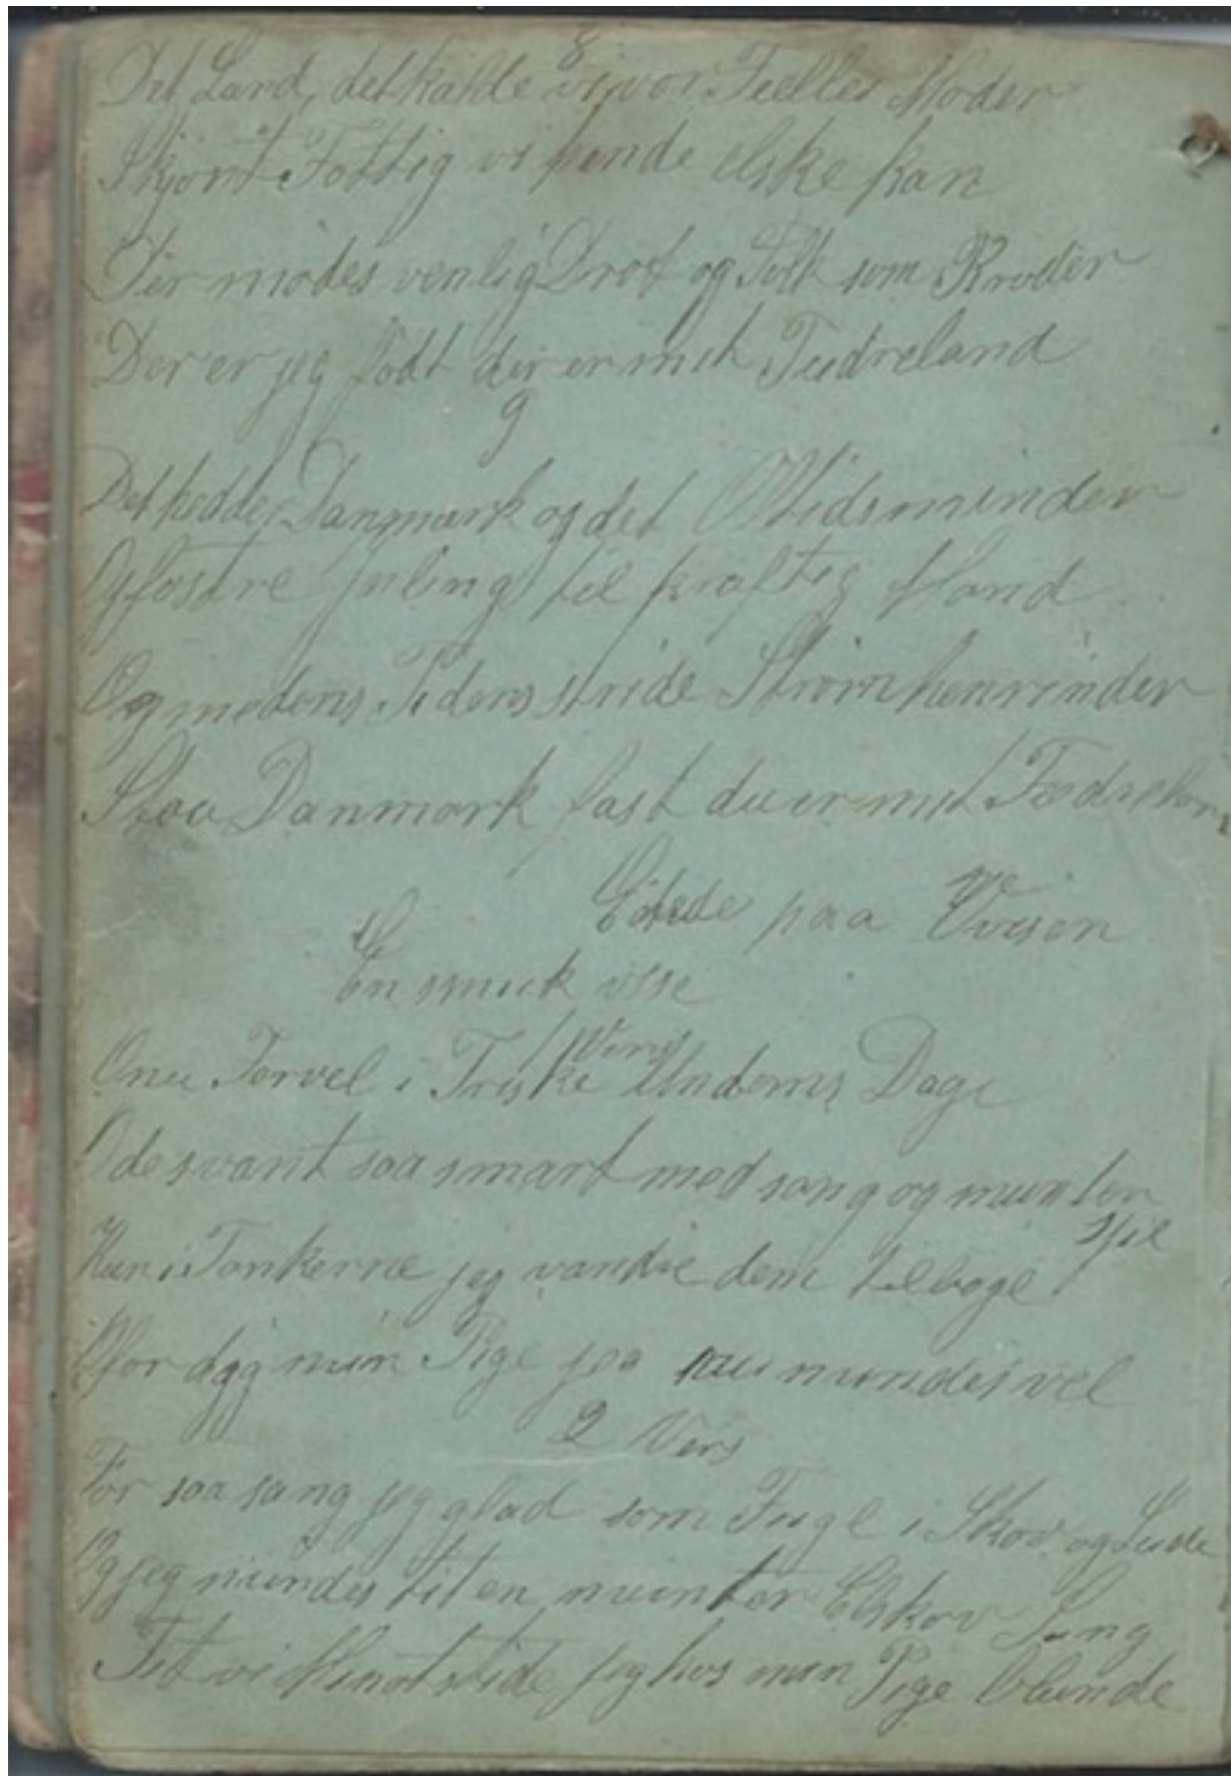 8
Det Land, det kalde vi vor Fælles Moder
Skjønt Fattig vi hende elske kan
Der mødes venlig Drot og Folk som Broder
Der er jeg født der er mit Fædreland
9
Det hedder Danmark og det Oltidsminder
Opfostre yngling til kraftig Mand
Og medens Tidens stride Strøm henrinder
Staa Danmark fast du er mit Fædreland
Ende paa Visen
En smuk vise
1 Vers
O nu Farvel i Friske Ungdoms Dage
I de svant saa smart med sang og munter
Spil
Kun i Tankerne jeg vandre dem tilbage
O for dig min Pige jeg nu mindes vel
2 Vers
Før saa sang jeg glad som Fugl i Skov og Lunde
Og jeg mindes tit en munter Elskov Sang
Tit ved jeg hos min Pige blunde